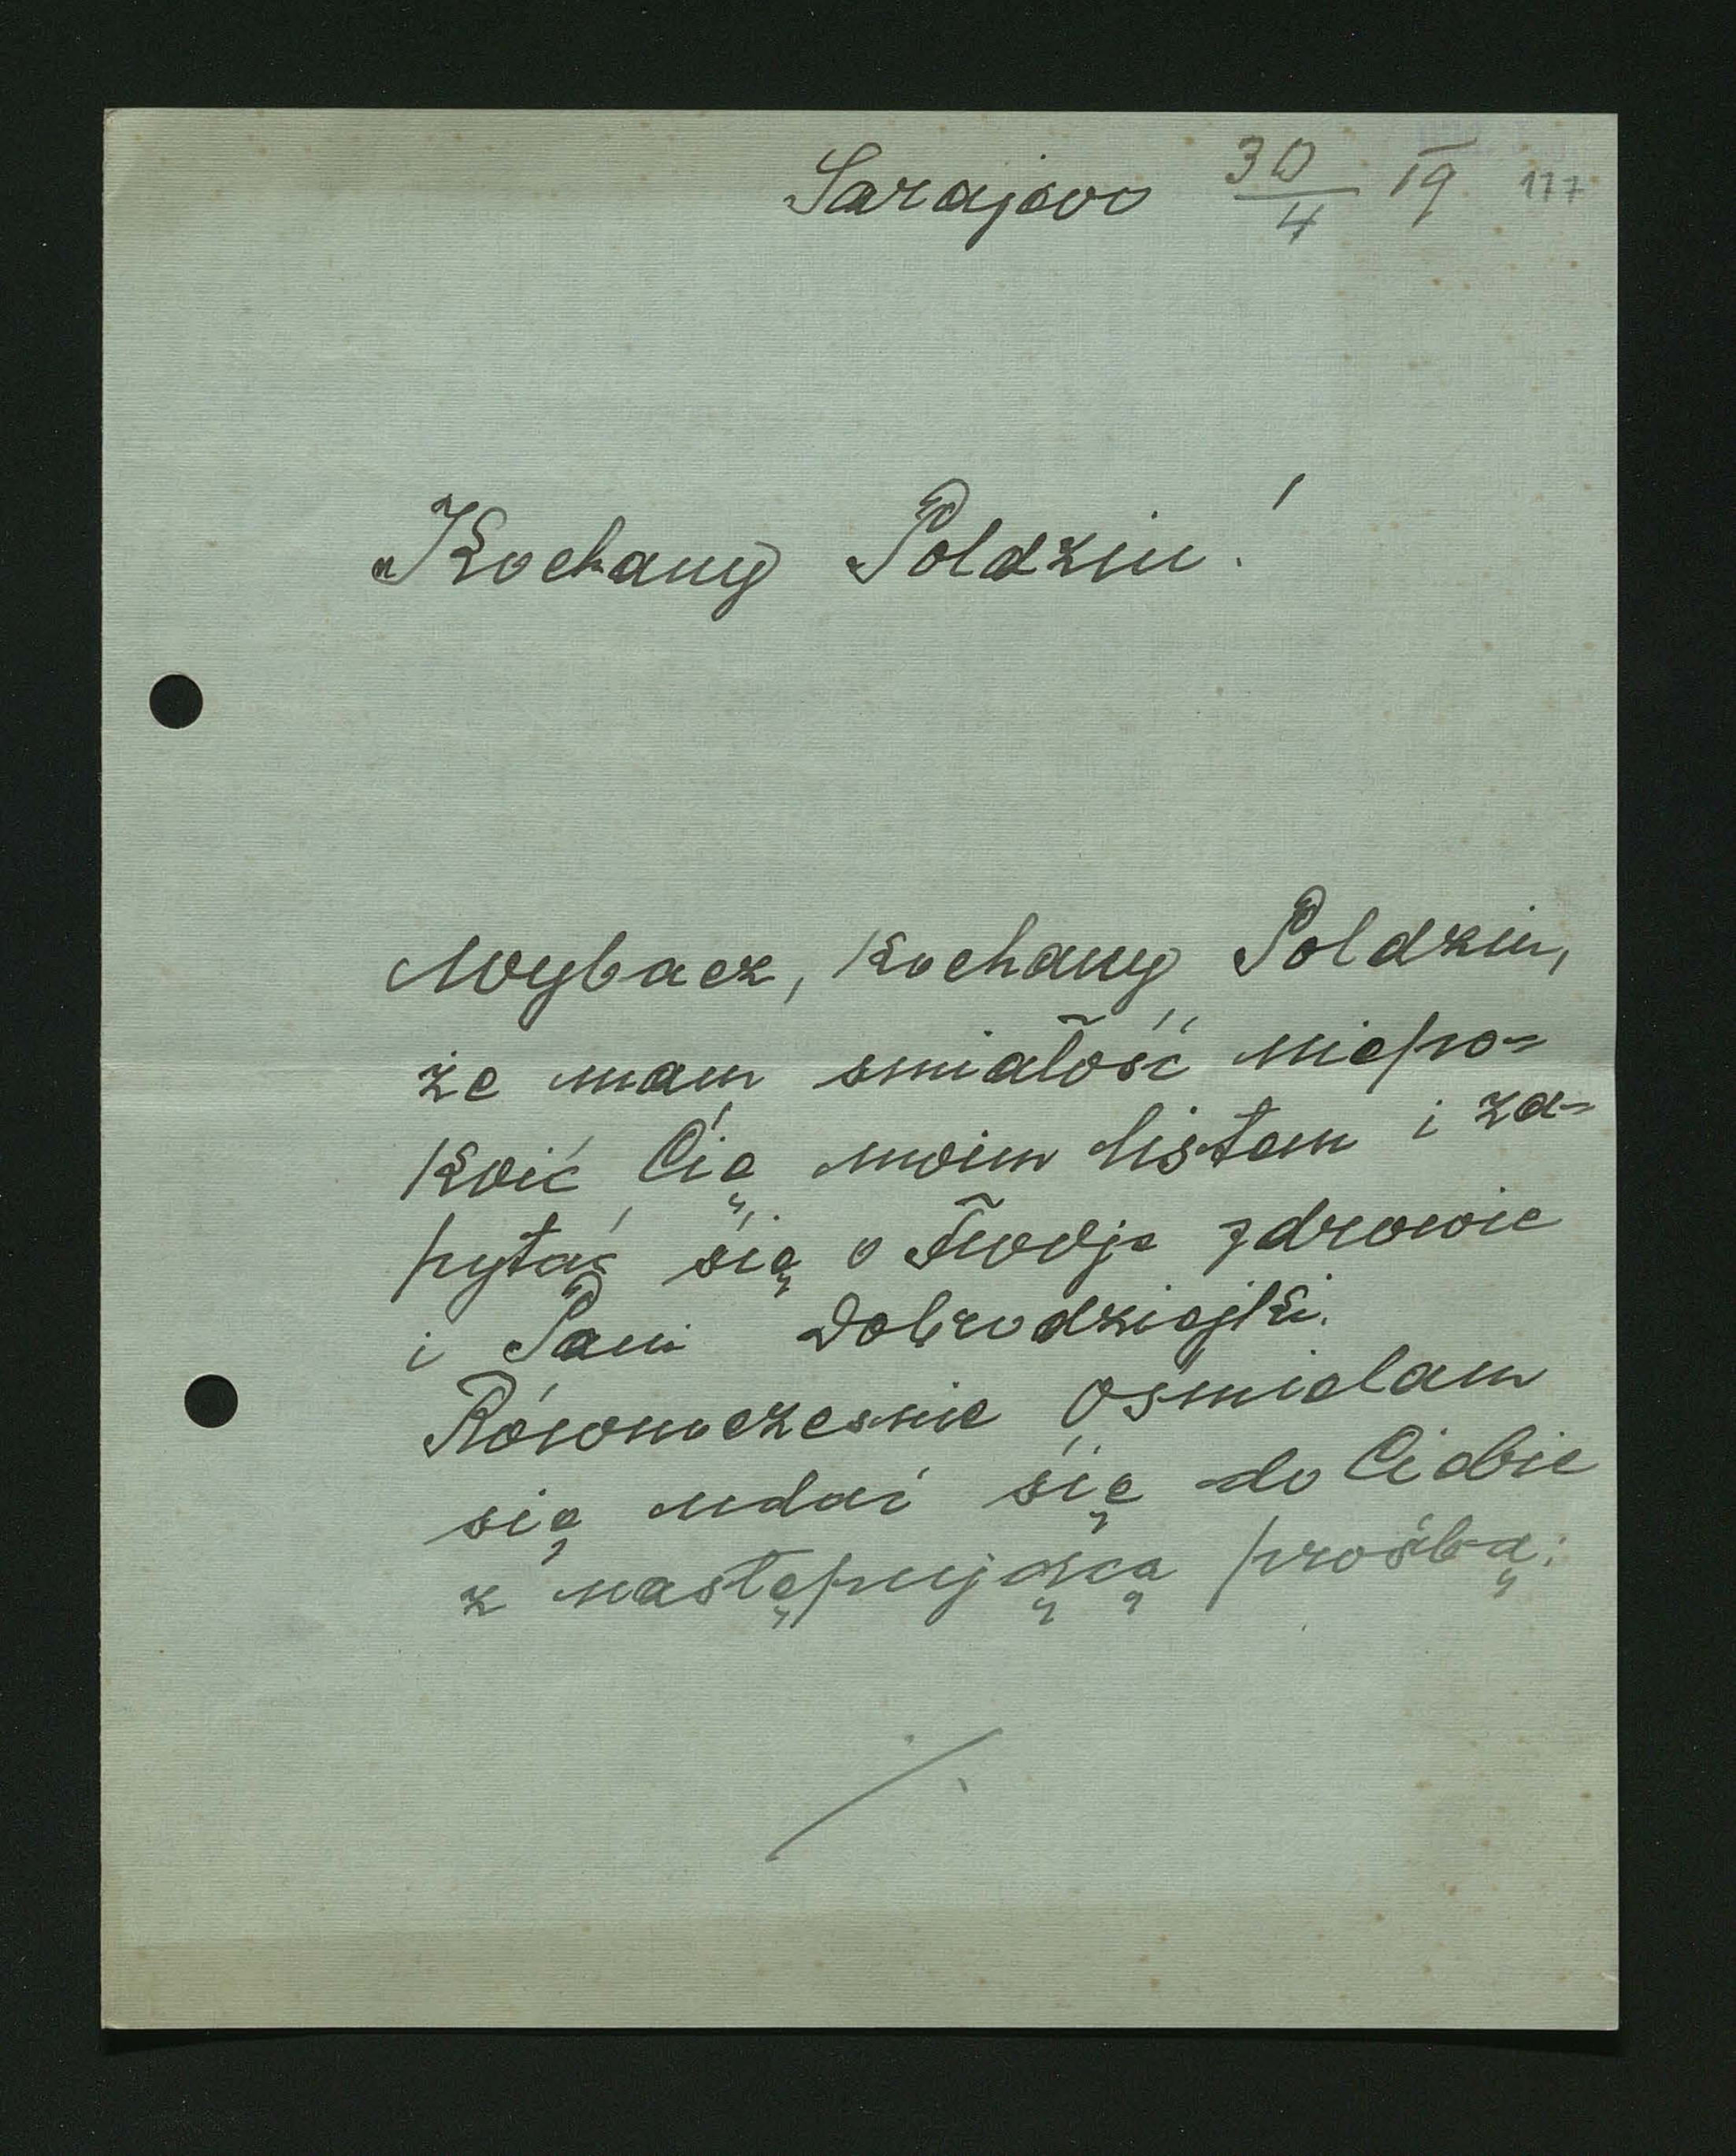 Sarajevo 30/4 19 117
Kochany Poldziu!
Wybacz, kochany Poldziu,
że mam smiałość niepo=
koić Cię moim listem i za=
pytać się o Twoje zdrowie
i Pani Dobrodziejki.
Równocześnie ośmielam
się udać się do Ciebie
z następującą prośbą:
./.